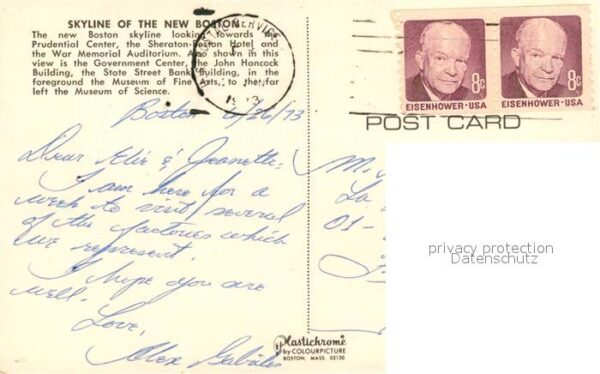 SKYLINE OF THE NEW BOSTON
The new Boston skyline looking towards the
Prudential Center, the Sheraton-Boston Hotel and
the War Memorial Auditorium. Also shown in this
view is the Government Center, the John Hancock
Building, the State Street Bank Building, in the
foreground the Museum of Fine Arts, to the far
left the Museum of Science.
SERVICE
1973
8c
EISENHOWER·USA
8c
EISENHOWER·USA
POST CARD
Boston 6/26/73
Dear & Jeanette:
I am here for a
week to visit several
of the factories which
we represent.
I hope you are
well.
Love,
Alex
M.
La
01-
privacy protection
Datenschutz
Plastichrome
by COLOURPICTURE
BOSTON, MASS 02130